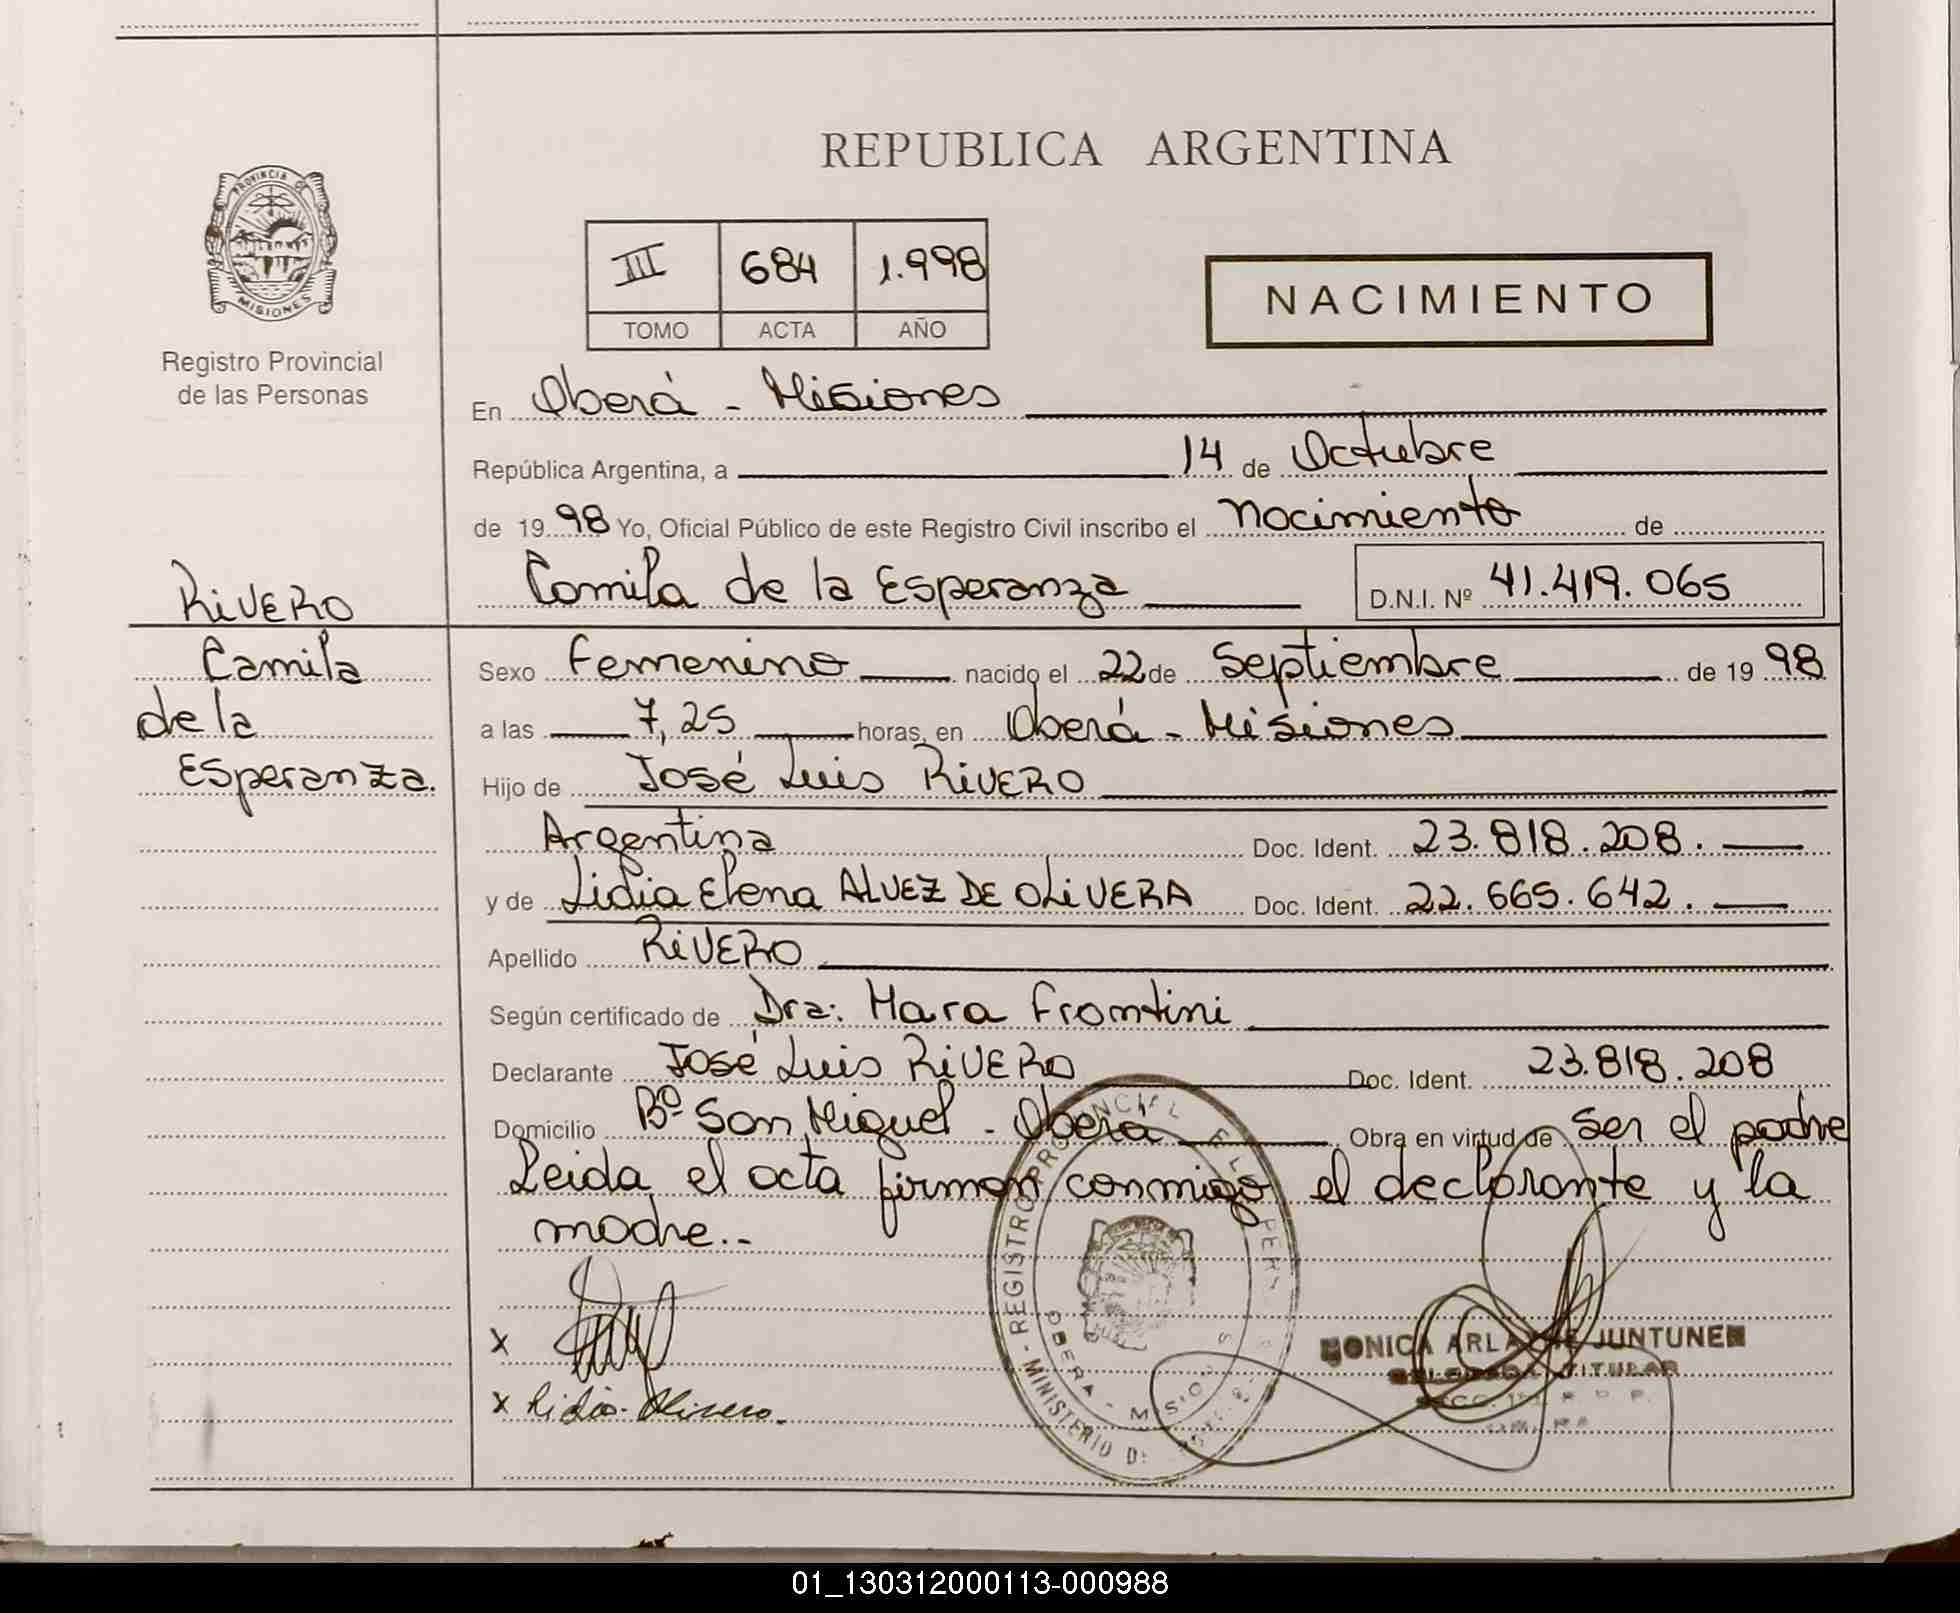 REPUBLICA ARGENTINA
PROVINCIA DE
MISIONES
Registro Provincial
de las Personas
III 684 1.998
TOMO ACTA AÑO
NACIMIENTO
En Oberá - Misiones
República Argentina, a 14 de Octubre
de 19 98 Yo, Oficial Público de este Registro Civil inscribo el Nacimiento de
Camila de la Esperanza D.N.I. Nº 41.419.065
RIVERO
Camila
de la
Esperanza.
Sexo Femenino nacido el 22 de Septiembre de 19 98
a las 7,25 horas, en Oberá - Misiones
Hijo de José Luis RIVERO
Argentina Doc. Ident. 23.818.208.
y de Lidia Elena ALVEZ DE OLIVERA Doc. Ident. 22.665.642.
Apellido RIVERO
Según certificado de Dra: Mara Frontini
Declarante José Luis RIVERO Doc. Ident. 23.818.208
Domicilio Bº San Miguel - Oberá Obra en virtud de ser el padre
Leida el acta firman conmigo el declarante y la
madre..
X
X Lidia
REGISTRO PROVINCIAL DE LAS PER
MINISTERIO DE
OBERA - MISIONES
MONICA ARLA JUNTUNEN
DELEGADA TITULAR
01_130312000113-000988